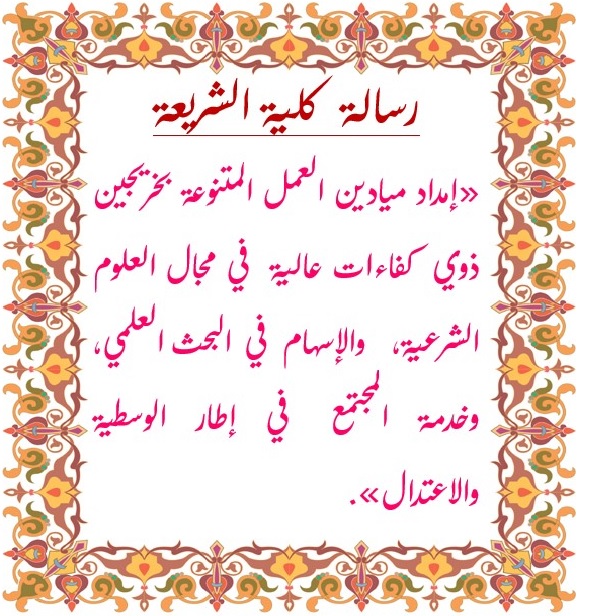 رسالة كلية الشريعة
«إمداد ميادين العمل المتنوعة بخريجين
ذوي كفاءات عالية في مجال العلوم
الشرعية، والإسهام في البحث العلمي،
وخدمة المجتمع في إطار الوسطية
والاعتدال».